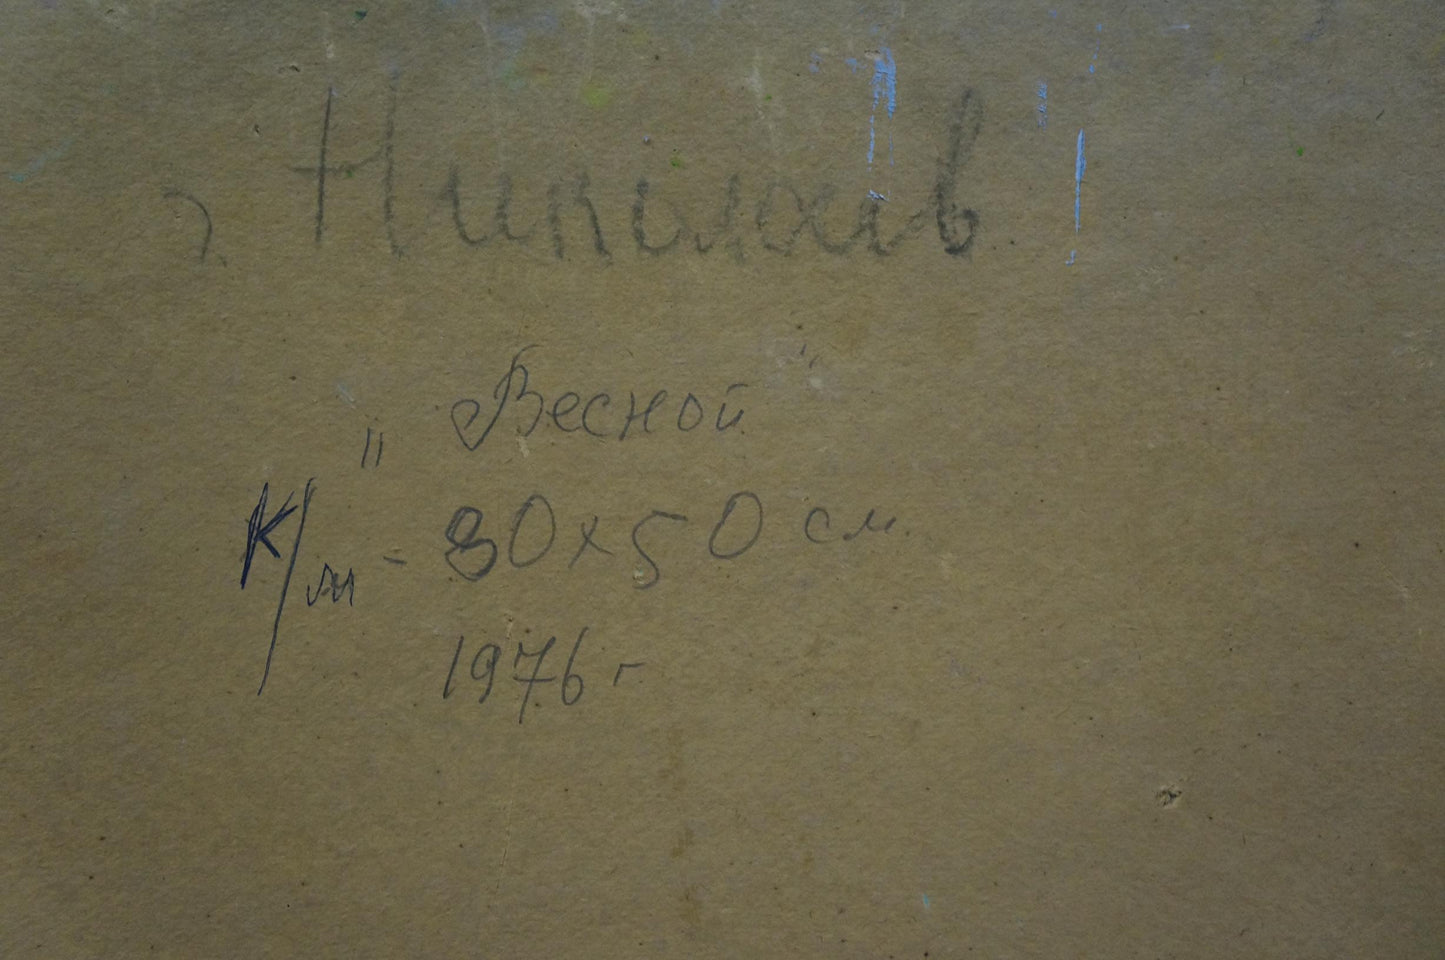 г. Николаев
"Весной"
К/м - 80х50 см
1976 г